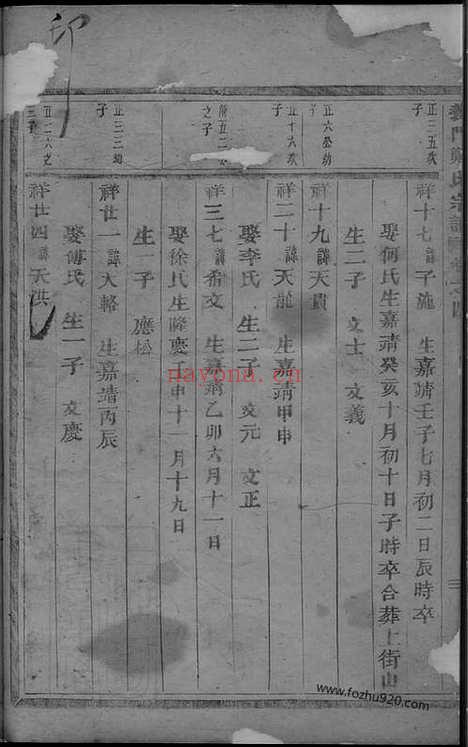 義門鄭氏宗譜
正三五次子
祥十七諱子施 生嘉靖壬子七月初二日辰時卒
娶何氏生嘉靖癸亥十月初十日子時卒合葬上街山
生二子 文士 文義
正六公幼子
祥十九諱天貴
正十六次子
祥二十諱天龍 生嘉靖甲申
娶李氏 生二子 文元 文正
之子
祥三七諱希文 生嘉靖乙卯六月十一日
娶徐氏生隆慶 申十一月十九日
生一子 應松
正三三幼子
祥廿一諱大輅 生嘉靖丙辰
娶傅氏 生一子 文慶
正二六
祥廿四諱天洪
印
nayona.cn
www.fozhu920.com